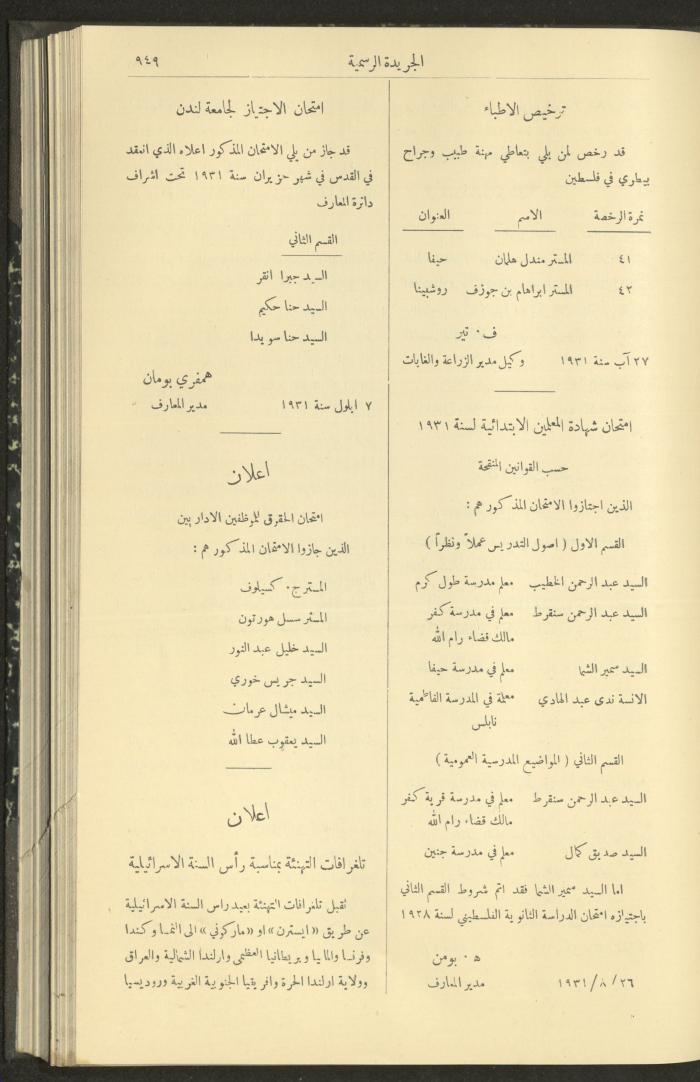 الجريدة الرسمية
٩٤٩
ترخيص الاطباء
قد رخص لمن يلي بتعاطي مهنة طبيب وجراح
بيطاري في فلسطين
نمرة الرخصة الاسم العنوان
٤١ المستر مندل هلمان حيفا
٤٢ المستر ابراهام بن جوزف روشبينا
ف . تير
٢٧ آب سنة ١٩٣١ وكيل مدير الزراعة والغابات
امتحان شهادة المعلمين الابتدائية لسنة ١٩٣١
حسب القوانين المنقحة
الذين اجتازوا الامتحان المذكور هم :
القسم الاول ( اصول التدريس عملاً ونظراً )
السيد عبد الرحمن الخطيب معلم مدرسة طول كرم
السيد عبد الرحمن سنقرط معلم في مدرسة كفر
مالك قضاء رام الله
السيد سمير الشما معلم في مدرسة حيفا
الانسة ندى عبد الهادي معلمة في المدرسة الفاطمية
نابلس
القسم الثاني ( المواضيع المدرسية العمومية )
السيد عبد الرحمن سنقرط معلم في مدرسة قرية كفر
مالك قضاء رام الله
السيد صديق كمال معلم في مدرسة جنين
اما السيد سمير الشما فقد اتم شروط القسم الثاني
باجتيازه امتحان الدراسة الثانوية الفلسطيني لسنة ١٩٢٨
ه . بومن
٢٦ / ٨ / ١٩٣١ مدير المعارف
امتحان الاجتياز لجامعة لندن
قد جاز من يلي الامتحان المذكور اعلاه الذي انعقد
في القدس في شهر حزيران سنة ١٩٣١ تحت اشراف
دائرة المعارف
القسم الثاني
السيد جبرا انقر
السيد حنا حكيم
السيد حنا سويدا
همفري بومان
٧ ايلول سنة ١٩٣١ مدير المعارف
اعلان
امتحان الحقوق للموظفين الاداريين
الذين جازوا الامتحان المذكور هم :
المستر ج . كسيلوف
المستر سسل هورتون
السيد خليل عبد النور
السيد جريس خوري
السيد ميشال عرمان
السيد يعقوب عطا الله
اعلان
تلغرافات التهنئة بمناسبة رأس السنة الاسرائيلية
تقبل تلغرافات التهنئة بعيد راس السنة الاسرائيلية
عن طريق «ايسترن» او «ماركوني» الى النمسا وكندا
وفرنسا والمانيا وبريطانيا العظمى وارلندا الشمالية والعراق
وولاية ارلندا الحرة وافريقيا الجنوبية الغربية وروديسيا